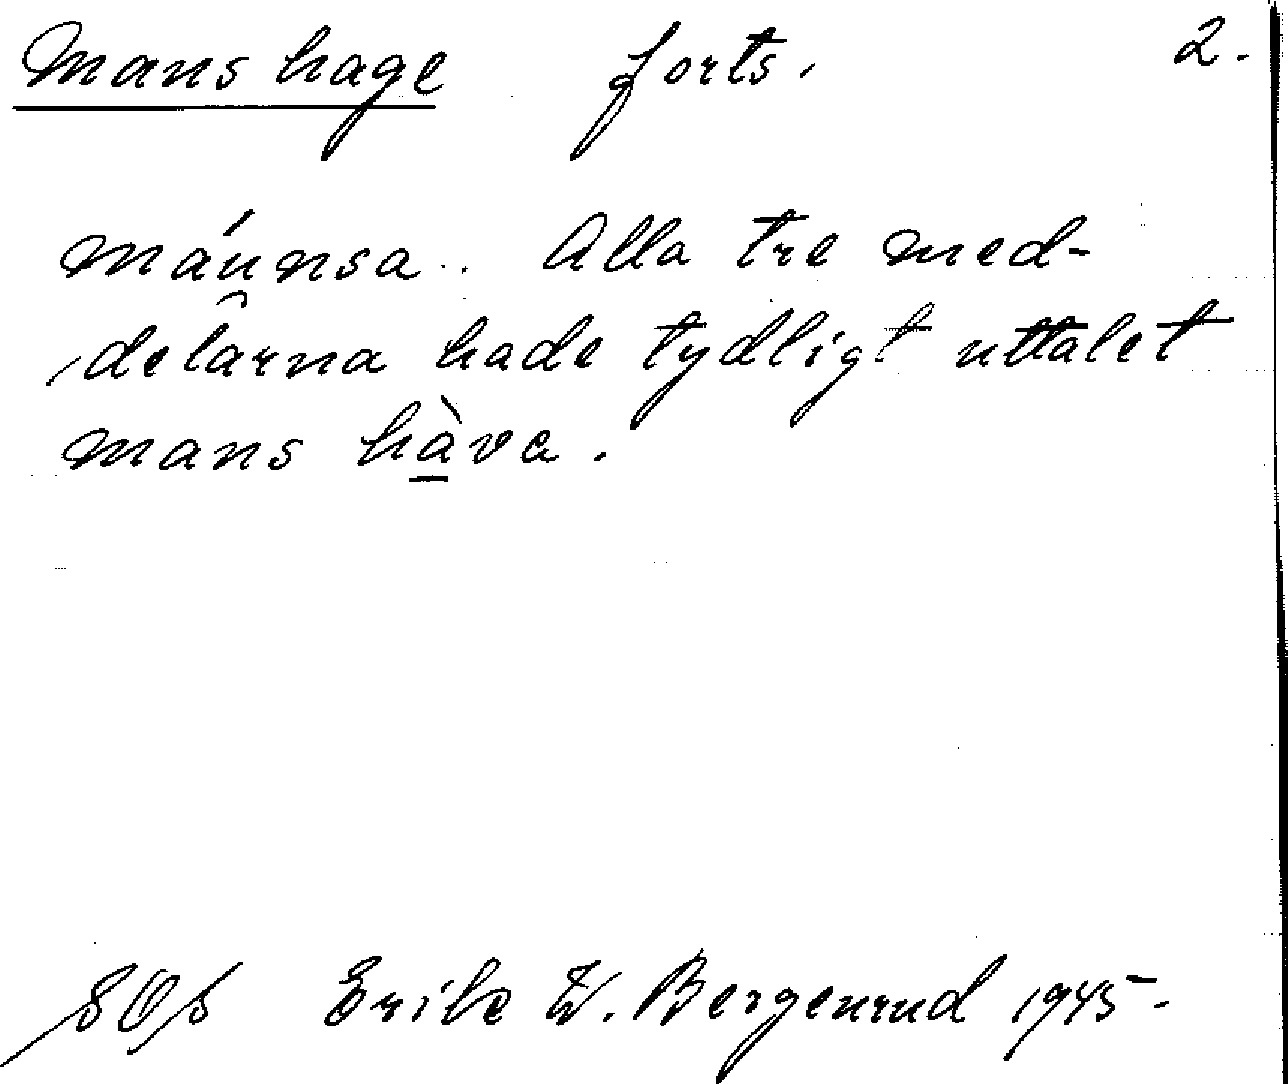 Mans hage forts. 2.
máunsa. Alla tre med-
delarna hade tydligt uttalet
mans hàva.
Erik W. Bergenrud 1945.